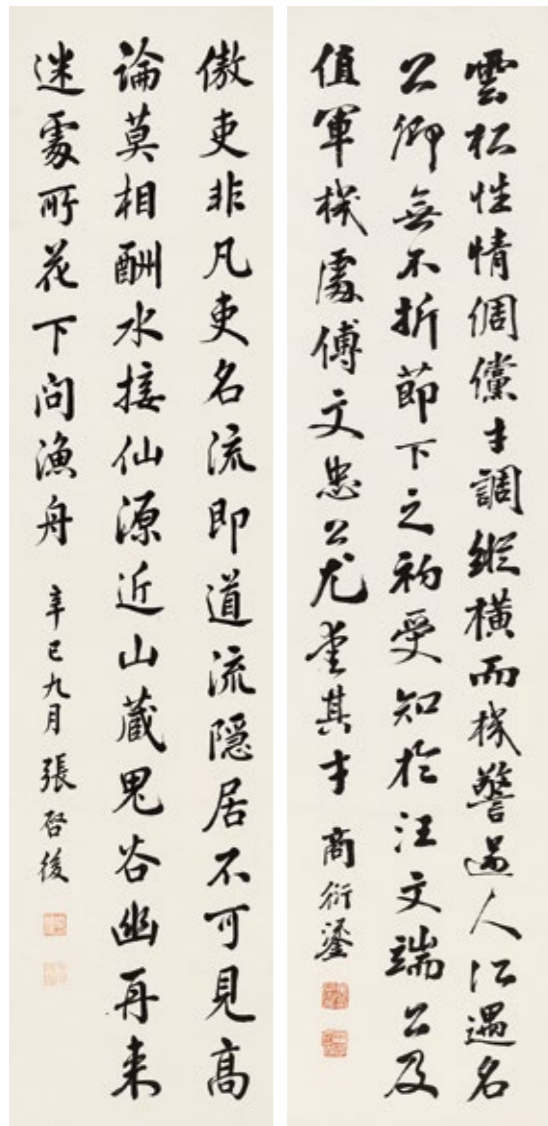 雲松性情倜儻才調縱橫而機警過人所遇名
公卿無不折節下之初受知於汪文端公及
值軍機處傅文忠公尤重其才 商衍鎏
傲吏非凡吏名流即道流隱居不可見高
論莫相酬水接仙源近山藏鬼谷幽再来
迷處所花下問漁舟 辛巳九月 張啓後